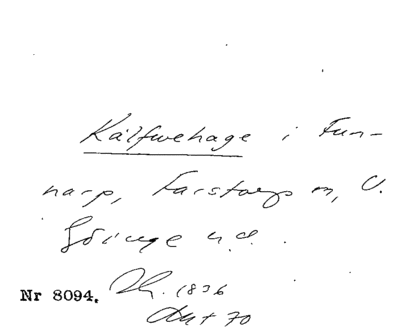 Kalfwehage i Fun-
narp, Farstorps sn, V.
Göinge hd.
Nr 8094. Lk. 1836
Akt 70